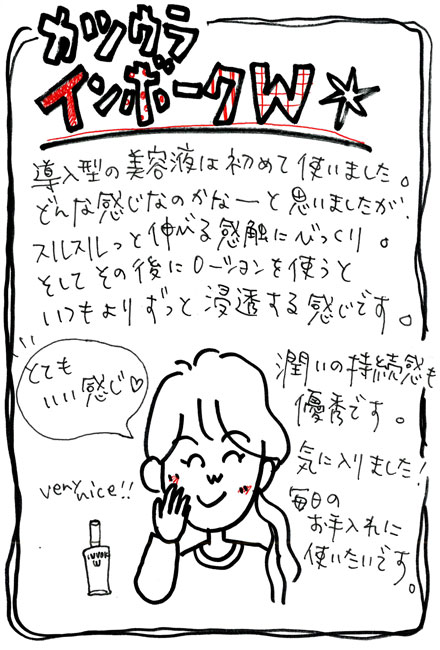 カツウラ
インボークW
導入型の美容液は初めて使いました。
どんな感じなのかなーと思いましたが、
スルスルっと伸びる感触にびっくり。
そしてその後にローションを使うと
いつもよりずっと浸透する感じです。
とても
いい感じ♡
潤いの持続感も
優秀です。
気に入りました!
毎日の
お手入れに
使いたいです。
very nice!!
INVOK
W